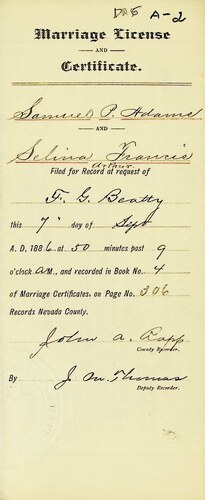 DRS A-2
Marriage License
AND
Certificate.
Samuel P. Adams
AND
Selina Francis
Arthur
Filed for Record at request of
F. G. Beatty
this 7" day of Sept
A. D. 1886 at 50 minutes past 9
o'clock A.M., and recorded in Book No. 4
of Marriage Certificates, on Page No. 306
Records Nevada County.
John A. Rapp
County Recorder.
By J. M. Thomas
Deputy Recorder.